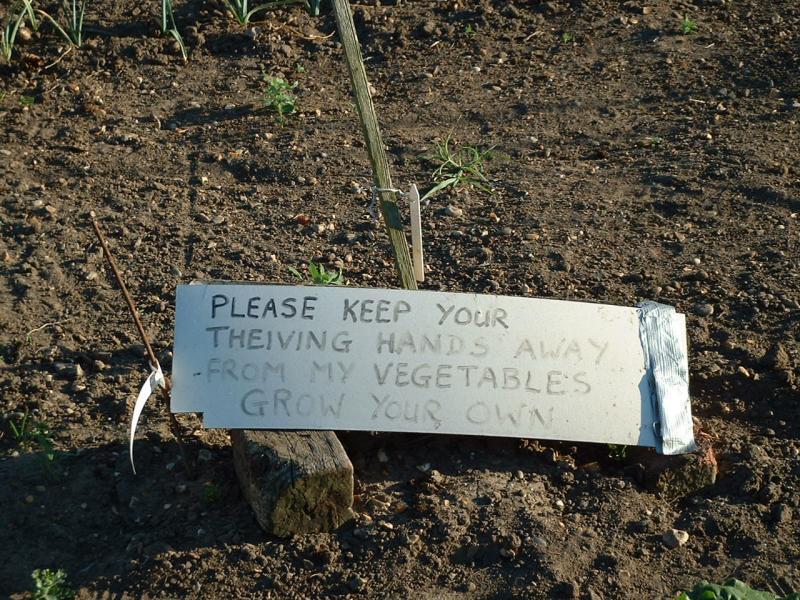 PLEASE KEEP YOUR
THEIVING HANDS AWAY
FROM MY VEGETABLES
GROW YOUR OWN